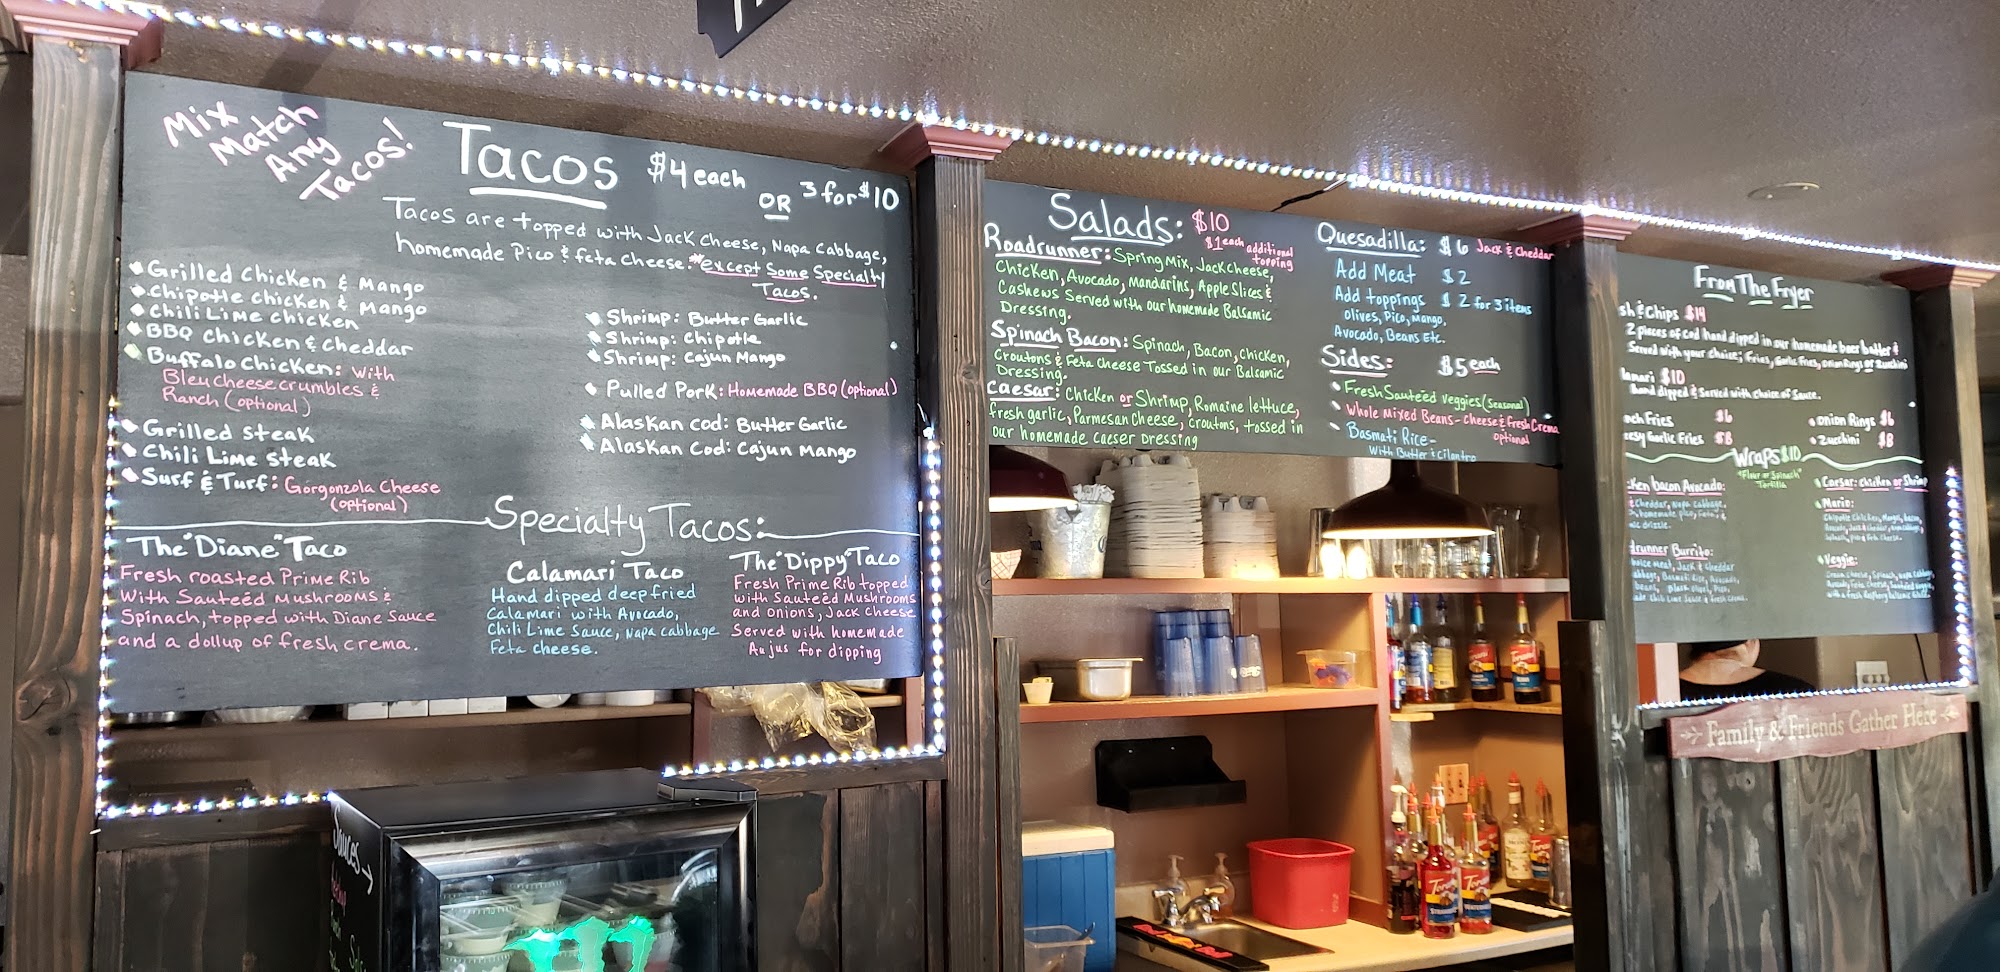 Mix
Match
Any
Tacos!
Tacos $4 each OR 3 for $10
Tacos are topped with Jack Cheese, Napa Cabbage,
homemade Pico & feta Cheese. *except Some Specialty
Tacos.
Grilled Chicken & Mango
Chipotle chicken & Mango
Chili Lime chicken
BBQ Chicken & Cheddar
Buffalo Chicken: With
Bleu cheese crumbles &
Ranch (optional)
Grilled Steak
Chili Lime Steak
Surf & Turf: Gorgonzola Cheese
(optional)
Shrimp: Butter Garlic
Shrimp: Chipotle
Shrimp: Cajun Mango
Pulled Pork: Homemade BBQ (optional)
Alaskan cod: Butter Garlic
Alaskan Cod: Cajun Mango
Specialty Tacos:
The "Diane" Taco
Fresh roasted Prime Rib
With Sauteéd Mushrooms &
Spinach, topped with Diane Sauce
and a dollup of fresh crema.
Calamari Taco
Hand dipped deep fried
Calamari with Avocado,
Chili Lime Sauce, Napa cabbage
Feta cheese.
The "Dippy" Taco
Fresh Prime Rib topped
with Sauteéd Mushrooms
and onions, Jack Cheese
Served with homemade
Aujus for dipping
Salads: $10
$1 each additional
topping
Roadrunner: Spring Mix, Jack cheese,
Chicken, Avocado, Mandarins, Apple Slices &
Cashews Served with our homemade Balsamic
Dressing.
Spinach Bacon: Spinach, Bacon, chicken,
Croutons & Feta Cheese Tossed in our Balsamic
Dressing.
Caesar: Chicken or Shrimp, Romaine lettuce,
fresh garlic, Parmesan Cheese, croutons, tossed in
our homemade caeser Dressing
Quesadilla: $6 Jack & Cheddar
Add Meat $2
Add toppings $2 for 3 items
olives, Pico, Mango,
Avocado, Beans Etc.
Sides: $5 each
Fresh Sauteéd veggies (Seasonal)
Whole Mixed Beans - cheese & Fresh Crema
optional
Basmati Rice -
With Butter & cilantro
From The Fryer
sh & Chips $14
2 pieces of cod hand dipped in our homemade beer batter &
Served with your choice; Fries, Garlic Fries, onion Rings or Zucchini
lamari $10
hand dipped & Served with choice of Sauce.
nch Fries $6
esy Garlic Fries $8
Onion Rings $6
Zucchini $8
Wraps $10
"Flour or Spinach"
Tortilla
ken bacon Avocado:
Cheddar, Napa Cabbage,
homemade pico, Feta &
drizzle.
drunner Burrito:
Meat, Jack & Cheddar
abbage, Basmati Rice, Avocado,
Beans, Black olives, Pico,
Chili Lime Sauce & fresh Crema.
Caesar: chicken or Shrimp
Mario:
Chipotle Chicken, Mango, bacon,
Avocado, Jack & Cheddar, Napa Cabbage,
Spinach, pico & Feta Cheese.
Veggie:
Cream Cheese, Spinach, Napa Cabbage,
Avocado, Feta Cheese, Sauteéd Veggies,
with a fresh Raspberry balsamic
Family & Friends Gather Here
Sauces
Torani
Torani